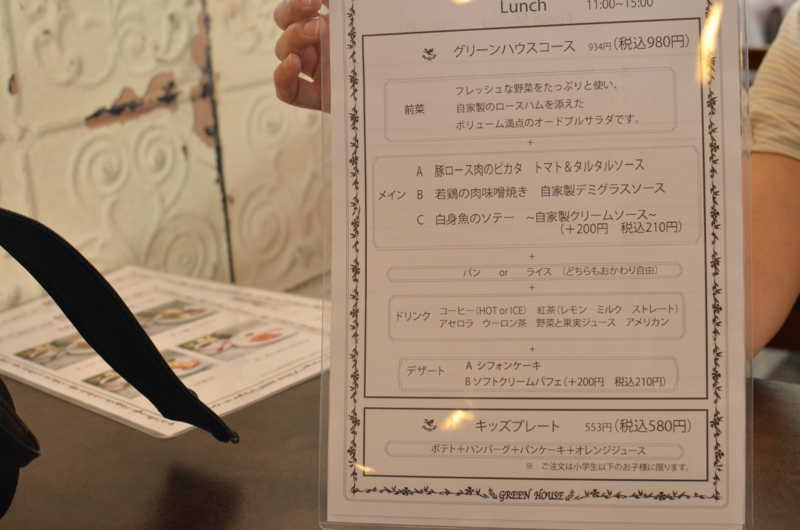 Lunch 11:00~15:00
グリーンハウスコース 934円(税込980円)
前菜
フレッシュな野菜をたっぷりと使い、
自家製のロースハムを添えた
ボリューム満点のオードブルサラダです。
+
メイン
A 豚ロース肉のピカタ トマト&タルタルソース
B 若鶏の肉味噌焼き 自家製デミグラスソース
C 白身魚のソテー ~自家製クリームソース~
(+200円 税込210円)
+
パン or ライス (どちらもおかわり自由)
+
ドリンク
コーヒー(HOT or ICE) 紅茶(レモン ミルク ストレート)
アセロラ ウーロン茶 野菜と果実ジュース アメリカン
+
デザート
A シフォンケーキ
B ソフトクリームパフェ(+200円 税込210円)
キッズプレート 553円(税込580円)
ポテト+ハンバーグ+パンケーキ+オレンジジュース
※ ご注文は小学生以下のお子様に限ります。
GREEN HOUSE